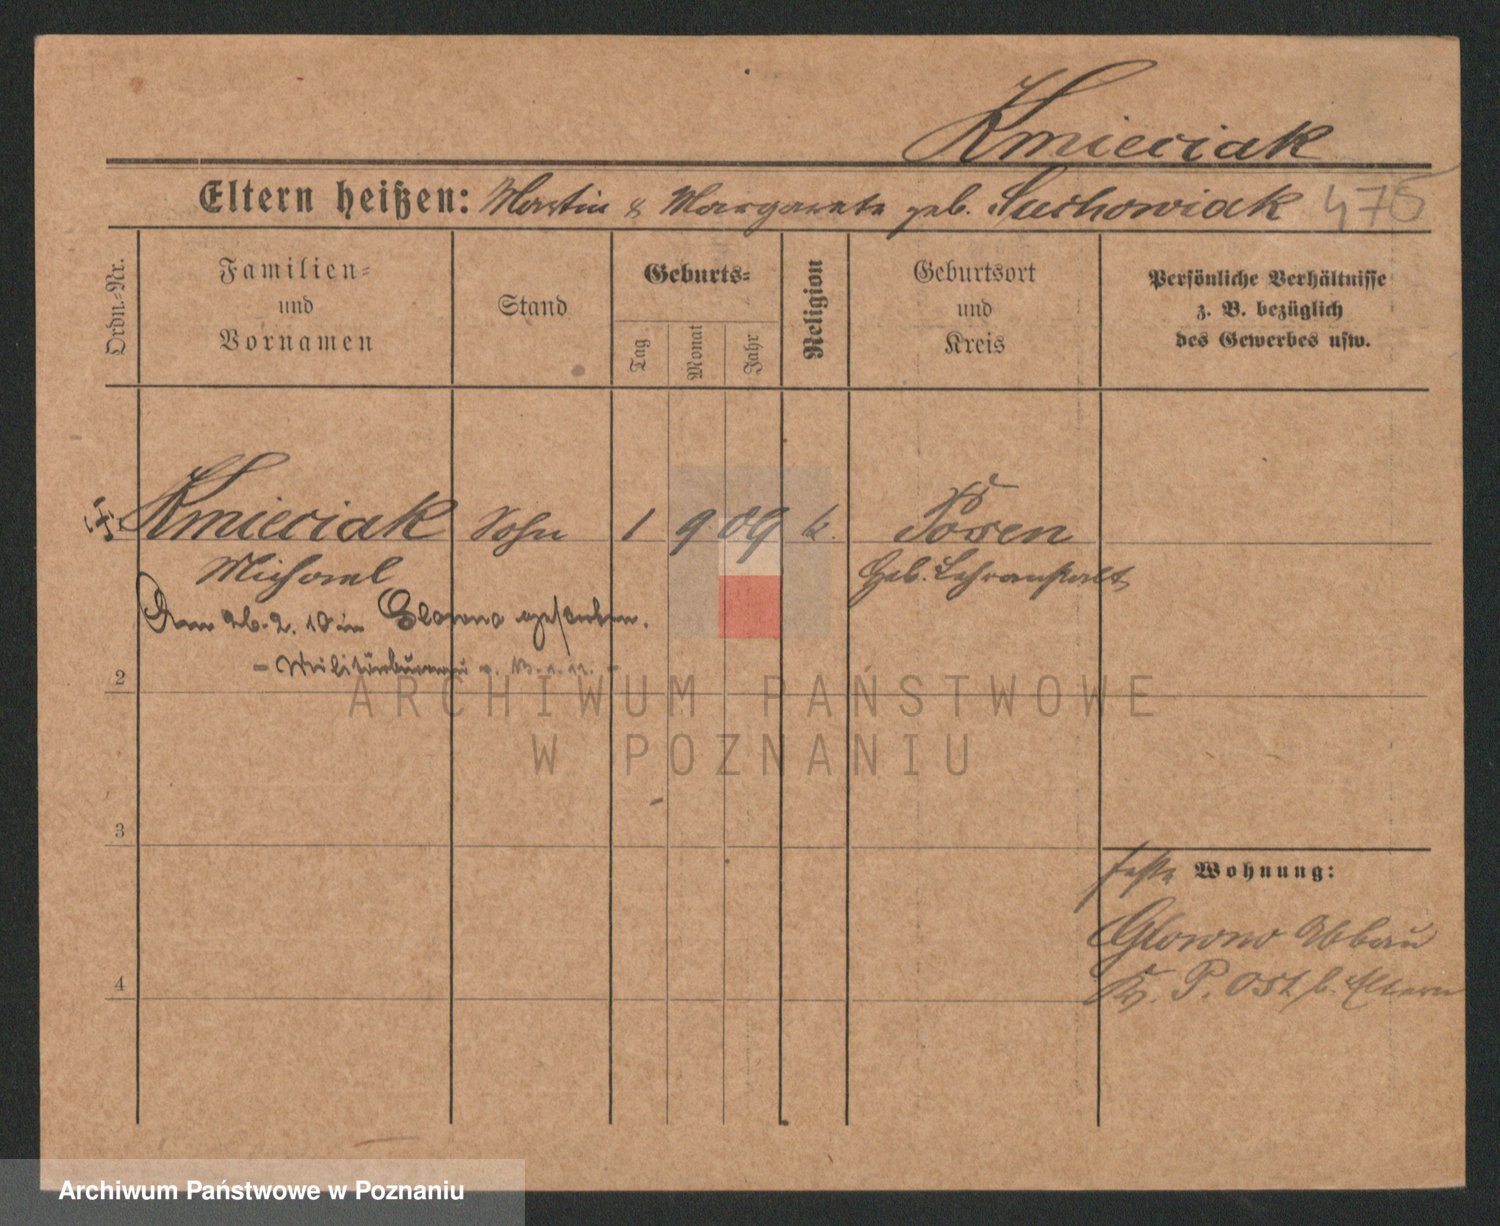 Kmieciak
Eltern heißen: Martin & Margarete geb. Suchowiak 475
Ordn.-Nr.
Familien-
und
Vornamen
Stand
Geburts-
Tag
Monat
Jahr
Religion
Geburtsort
und
Kreis
Persönliche Verhältnisse
z. B. bezüglich
des Gewerbes usw.
1 Kmieciak Sohn 1 9 09 k. Posen
Michael Heb. Lehranstalt
Am 26. 2. 10 in Glowno gestorben.
2
3
feste Wohnung:
Glowno Abbau
4
Kr. P. Ost b. Eltern
ARCHIWUM PAŃSTWOWE
W POZNANIU
Archiwum Państwowe w Poznaniu